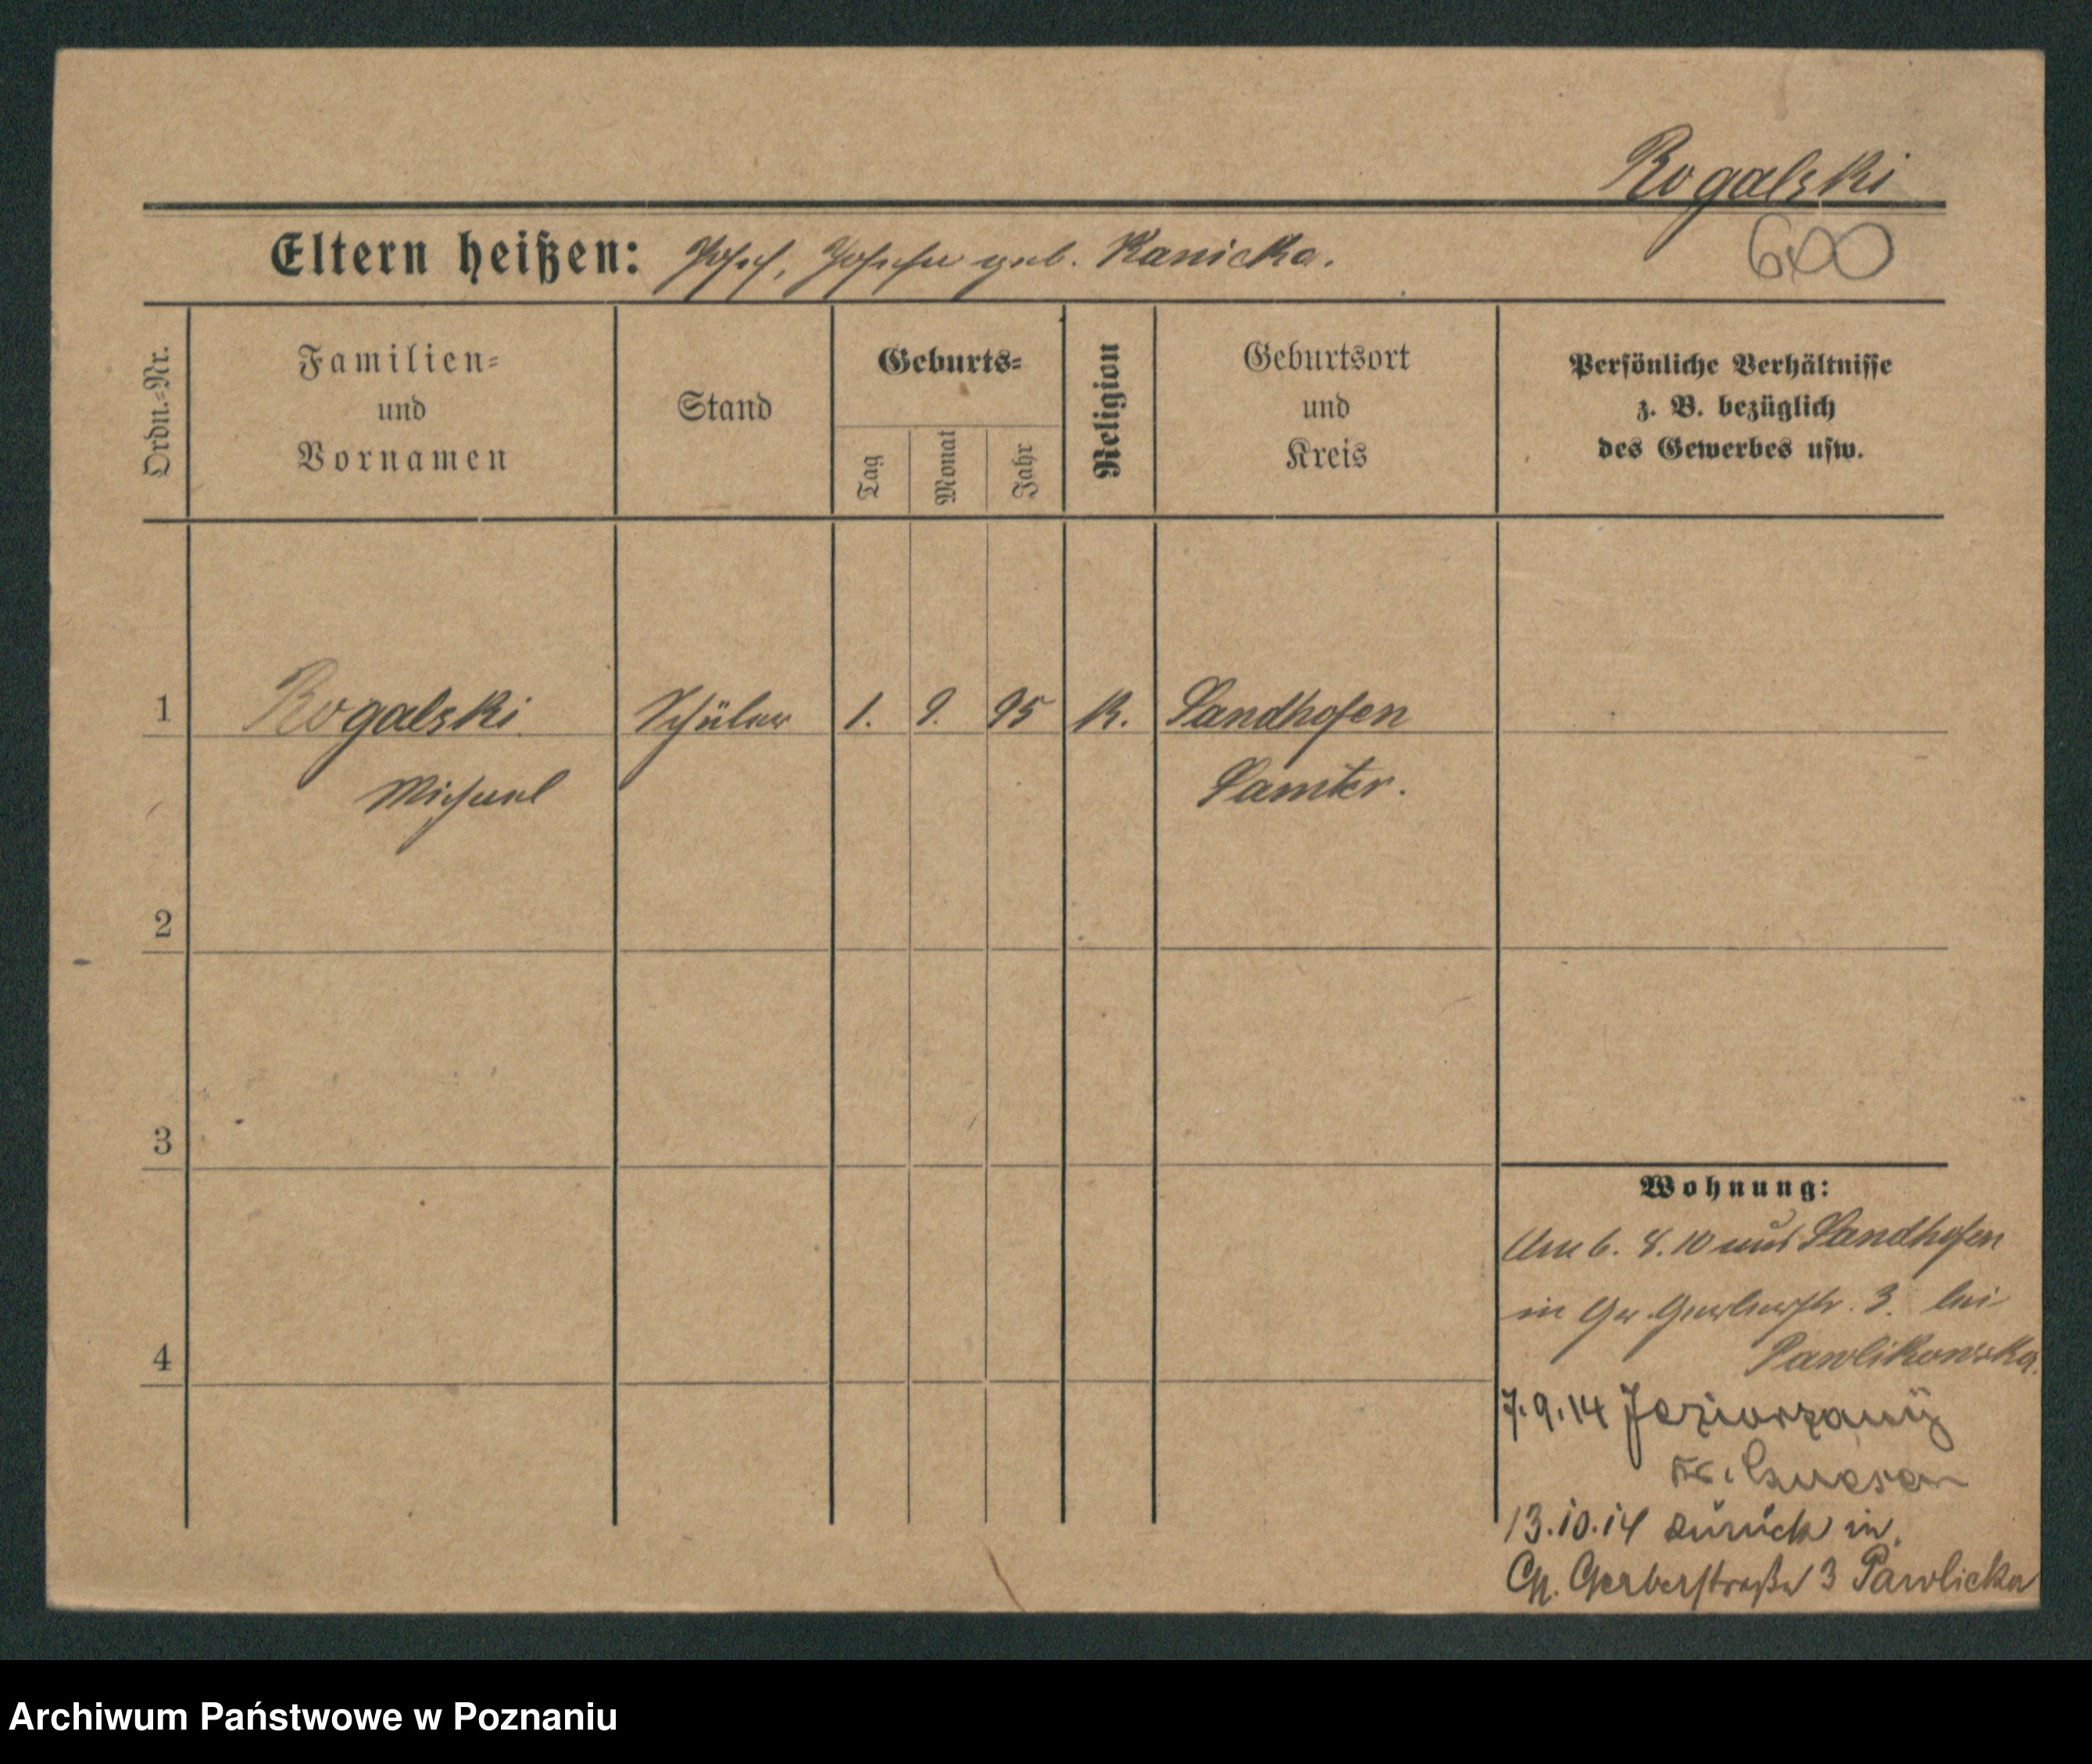 Rogalski
600
Eltern heißen: Josef, Josefa geb. Kanicka.
Ordn.-Nr.
Familien- und Vornamen
Stand
Geburts-
Tag
Monat
Jahr
Religion
Geburtsort und Kreis
Persönliche Verhältnisse
z. B. bezüglich
des Gewerbes usw.
1 Rogalski Schüler 1. 9. 95 K. Sandhofen
Michael Samter.
2
3
4
Wohnung:
Am 6. 8. 10 aus Sandhofen
in Gr. Gerberstr. 3. bei
Pawlikowska.
7.9.14 Jeziorzany
Kr. Gnesen
13.10.14 zurück in
Gr. Gerberstraße 3 Pawlicka
Archiwum Państwowe w Poznaniu